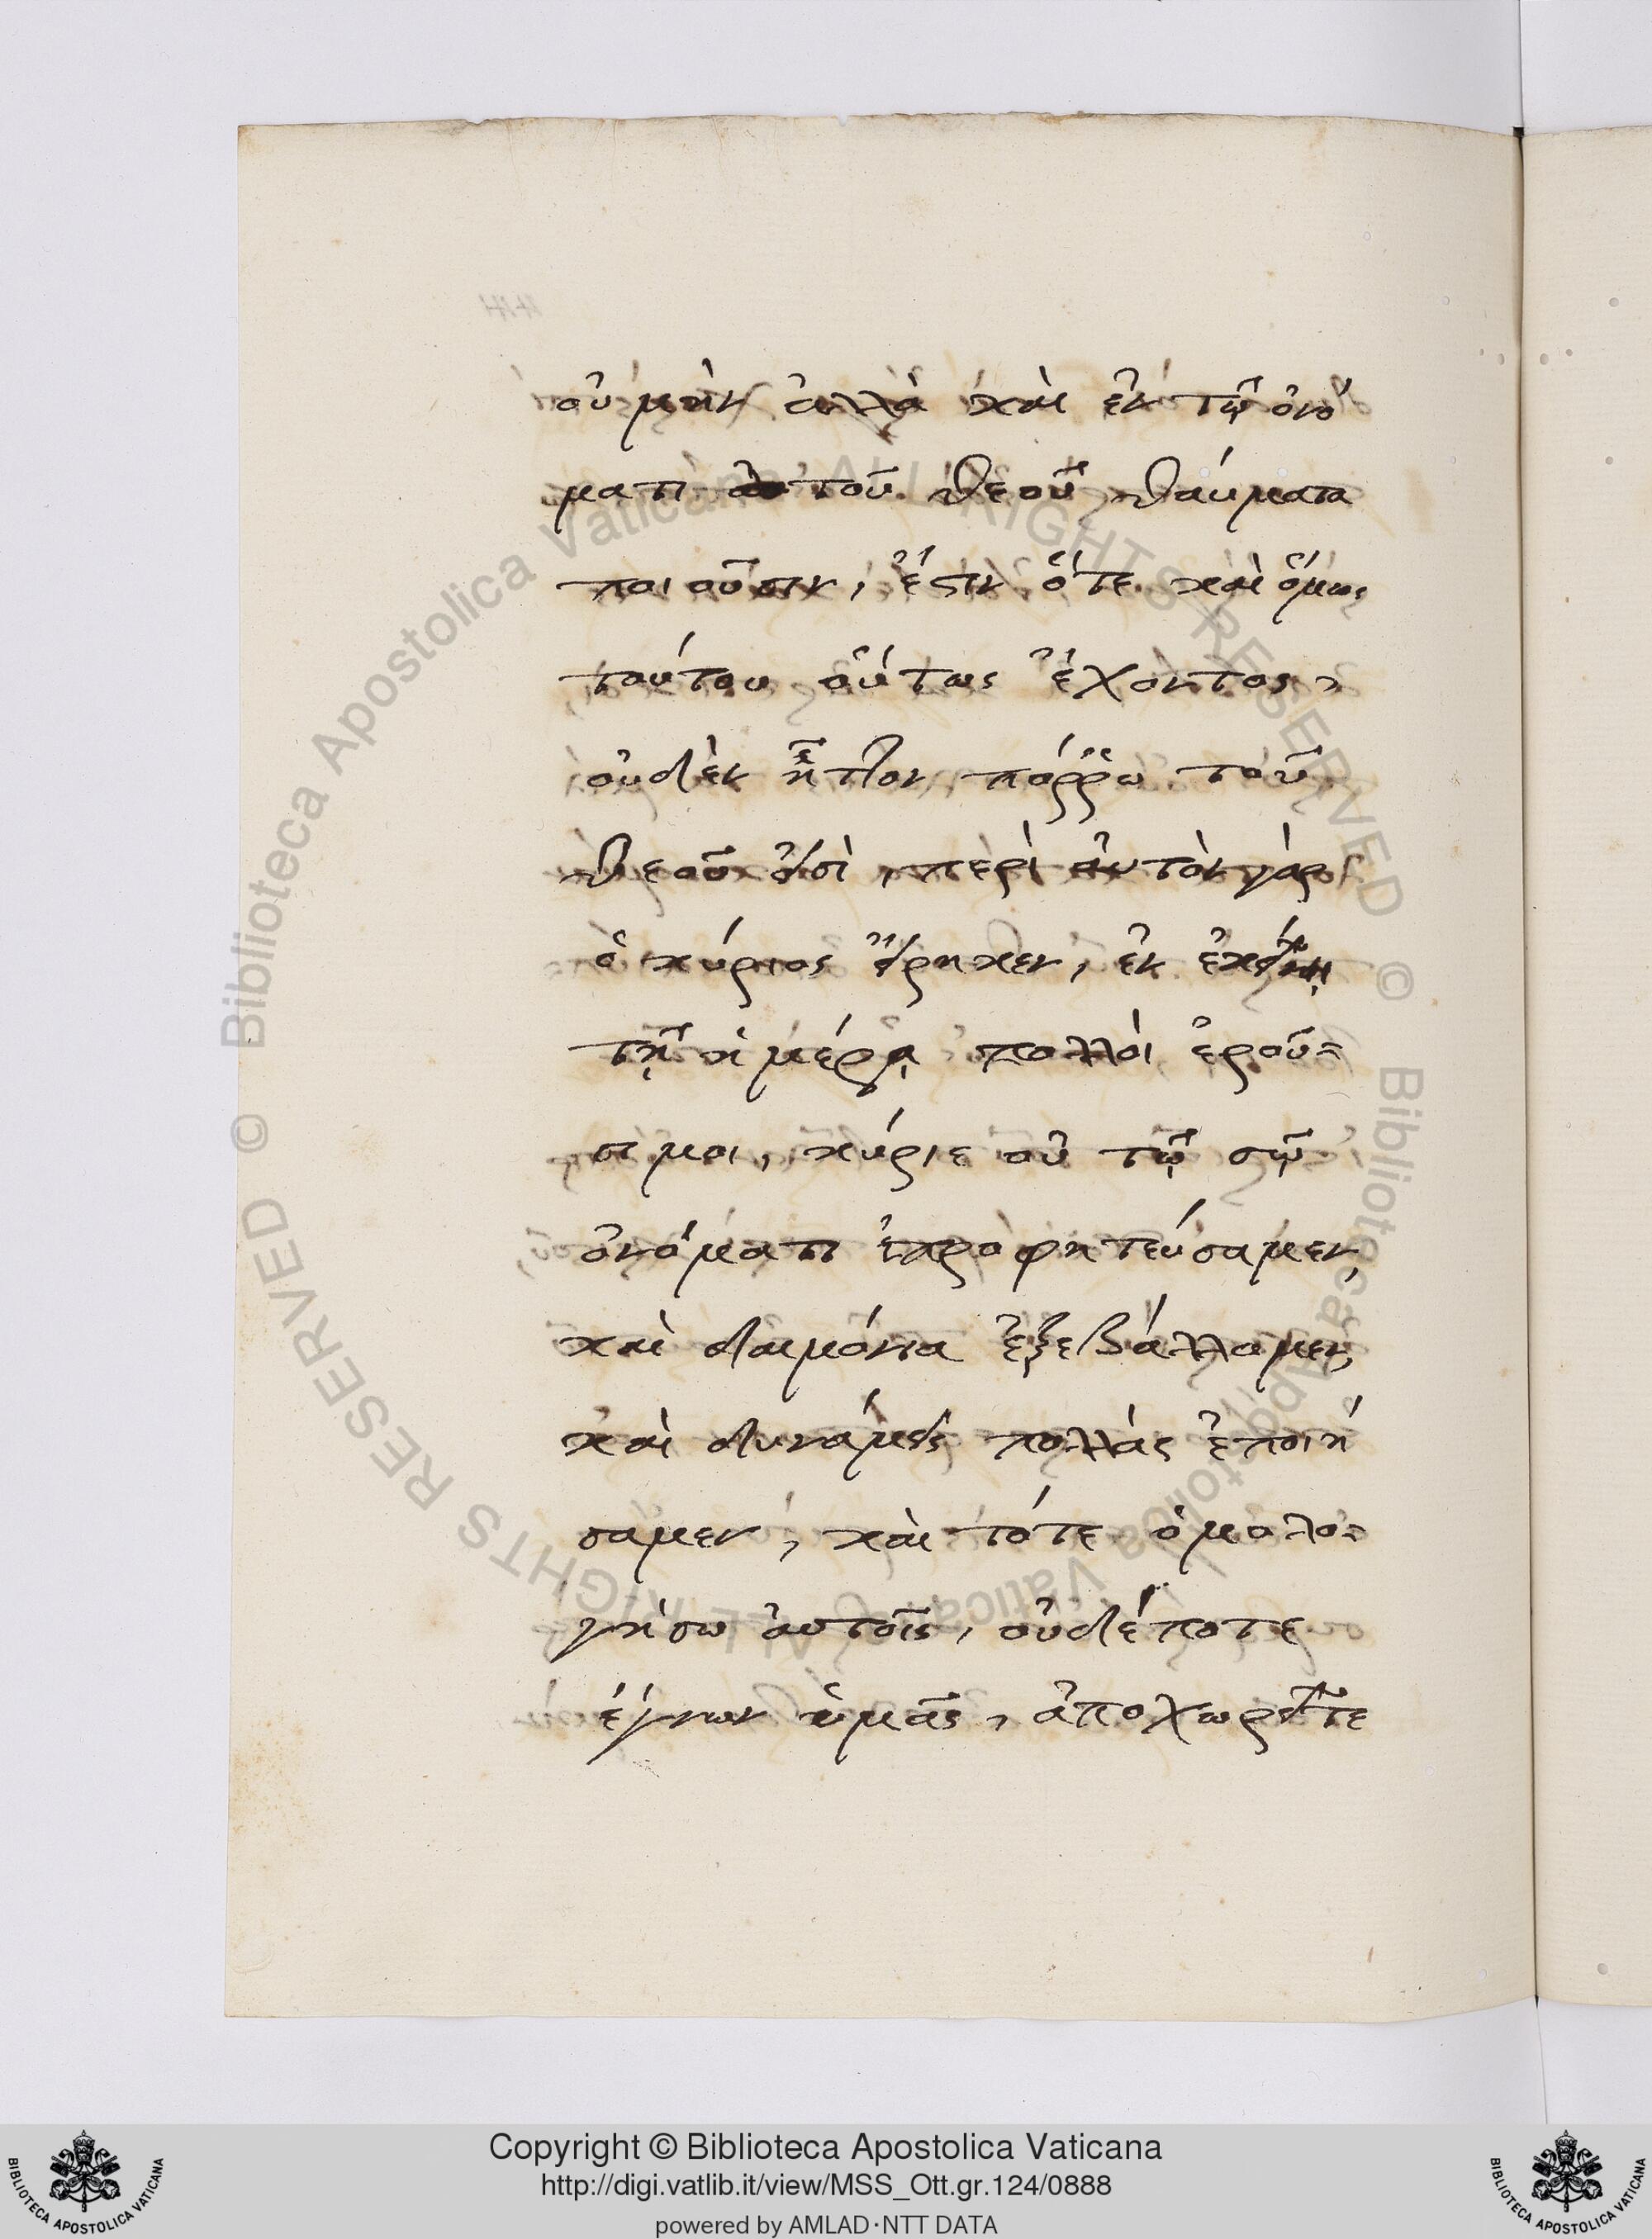 οὐ μὴν ἀλλὰ καὶ ἐν τῷ ὀνό
ματι τοῦ θεοῦ θαύματα
ποιοῦσιν, ἔστιν ὅτε καὶ ὅμως
τούτου οὕτως ἔχοντος,
οὐδὲν ἧττον πόῤῥω τοῦ
θεοῦ εἰσὶ, περὶ αὐτὸν γὰρ
ὁ κύριος εἴρηκεν, ἐν ἐκείνῃ
τῇ ἡμέρᾳ πολλοὶ ἐροῦ-
σι μοι, κύριε οὐ τῷ σῷ
ὀνόματι ἐπροφητεύσαμεν,
καὶ δαιμόνια ἐξεβάλλομεν,
καὶ δυνάμεις πολλὰς ἐποιή
σαμεν, καὶ τότε ὁμολο-
γήσω αὐτοῖς, οὐδέποτε
ἔγνων ὑμᾶς, ἀποχωρεῖτε
Biblioteca Apostolica Vaticana ALL RIGHTS RESERVED ©
Biblioteca Apostolica Vaticana ALL RIGHTS RESERVED ©
Copyright © Biblioteca Apostolica Vaticana
http://digi.vatlib.it/view/MSS_Ott.gr.124/0888
powered by AMLAD·NTT DATA
BIBLIOTECA APOSTOLICA VATICANA
BIBLIOTECA APOSTOLICA VATICANA